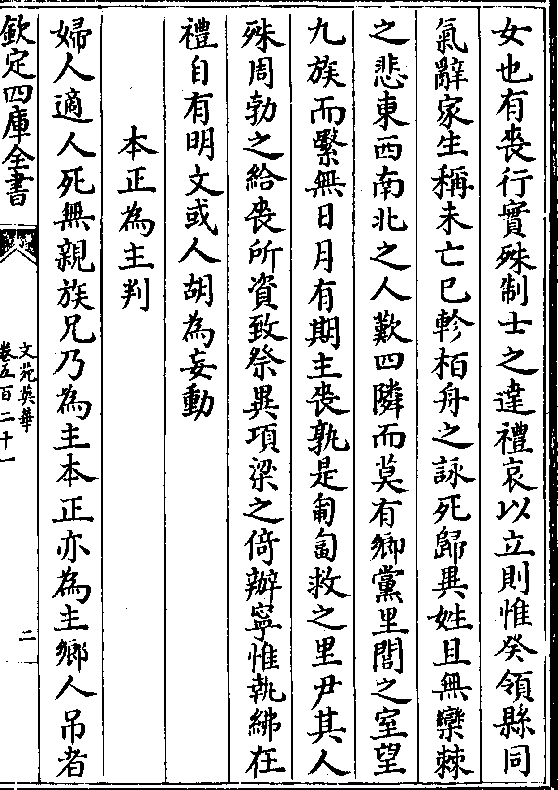 女也有喪行實殊制士之達禮哀以立則惟癸領縣同
氣辭家生稱未亡已軫栢舟之詠死歸異姓且無欒棘
之悲東西南北之人歎四隣而莫有鄉黨里閭之室望
九族而緊無日月有期主喪孰是匍匐救之里尹其人
殊周勃之給喪所資致祭異項梁之倚辦寧惟執紼在
禮自有明文或人胡為妄動
本正為主判
婦人適人死無親族兄乃為主本正亦為主鄉人吊者
欽定四庫全書
文苑英華
卷五百二十一
二